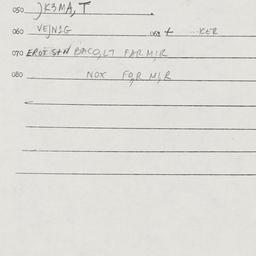 050 JK3MA,T
060 VEJN1G 068 t KER
070 EROI S+N BACO,LT FARMIR
080 NOX FO,R MI,R